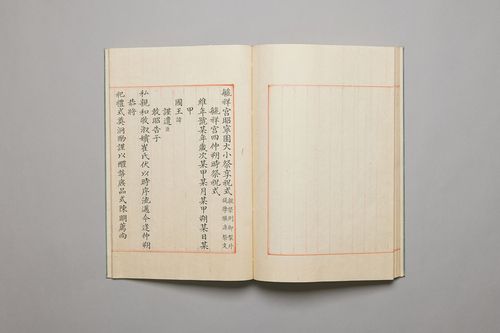 毓祥宮昭寧園大小祭享祝式
毓祥宮四仲朔時祭祝式
維年號某年歲次某甲某月某甲朔某日某
甲
國王諱
謹遣臣
敢昭告于
私親和敬淑嬪崔氏伏以時序流邁今逢仲朔
恭將
祀禮式奠泂酌謹以醴齊庶品式陳明薦尚